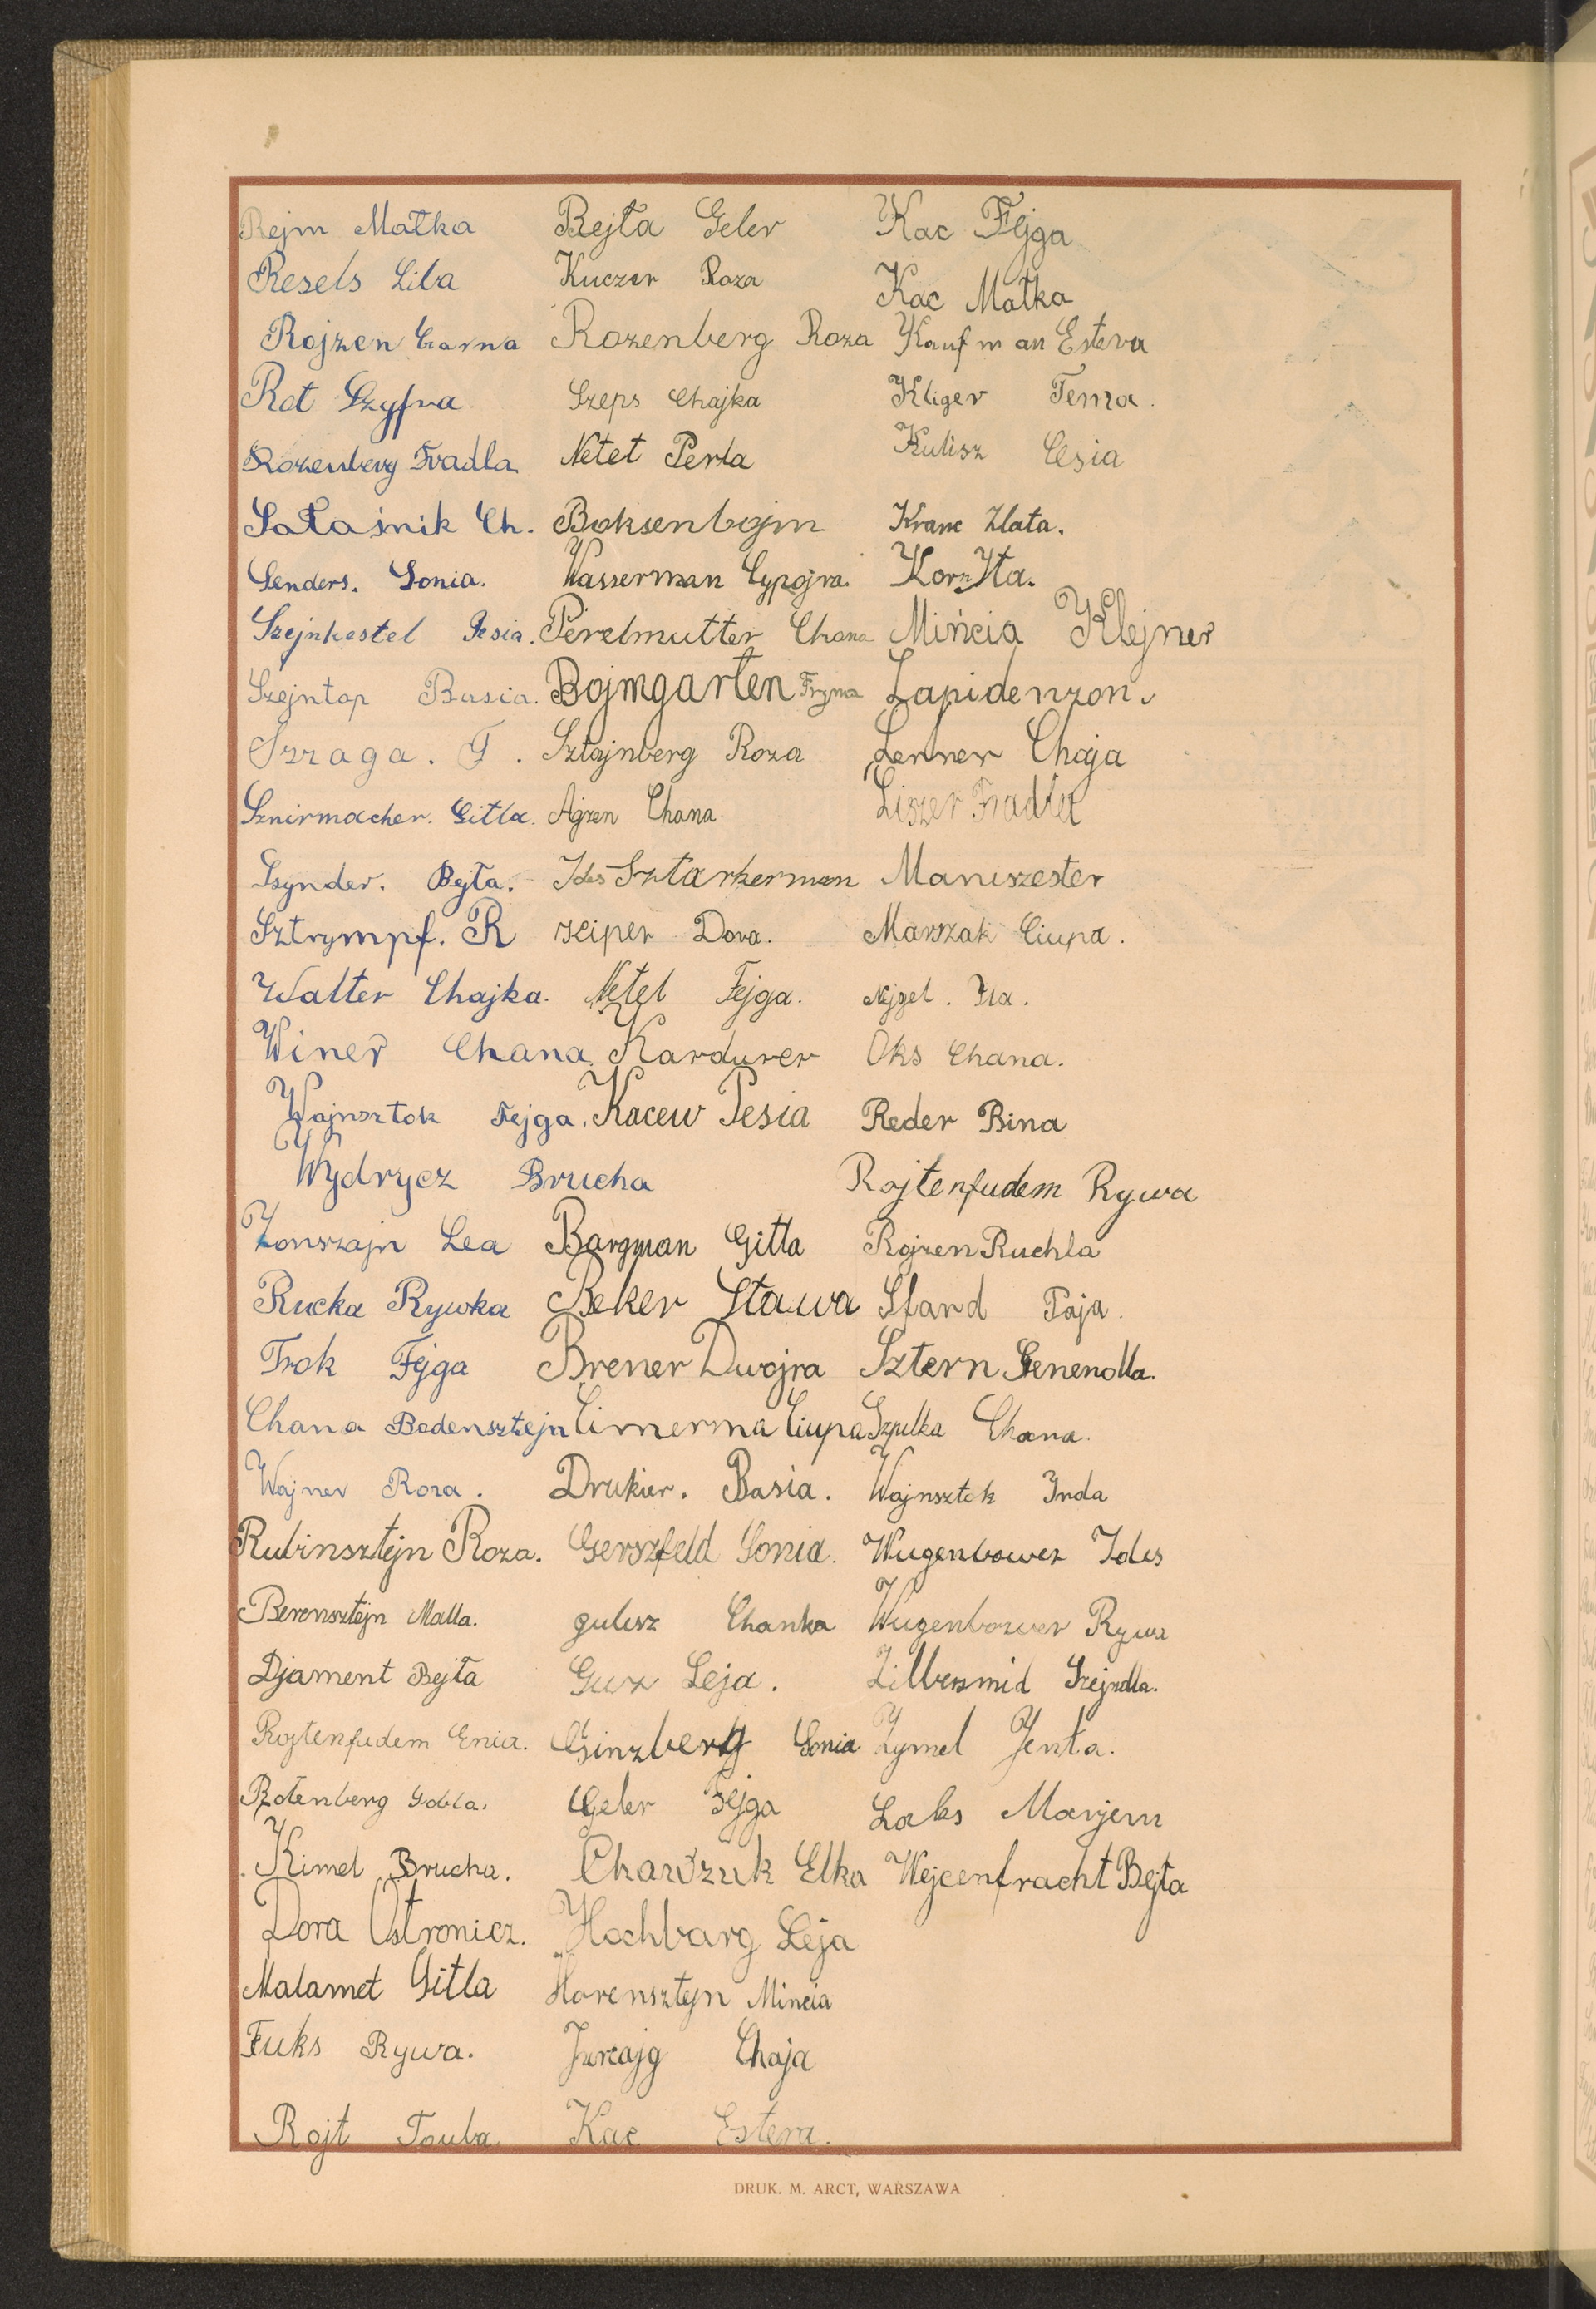 Rejm Małka
Resels Liba
Rojzen Czarna
Rot Szyfra
Rozenberg Fradla
Sałaśnik Ch.
Senders. Sonia.
Szejnkestel Pesia.
Szejntop Basia.
Szraga. G.
Sznirmacher. Gitla.
Sznyder. Bejła.
Sztrympf. R
Walter Chajka.
Winer Chana.
Wajnsztok Fejga.
Wydrycz Brucha
Zonszajn Lea
Rucka Rywka
Trok Fejga
Chana Bodensztejn
Wajner Roza.
Rubinsztejn Roza.
Berensztejn Malla.
Djament Bejła
Rojtenfudem Enia.
Rotenberg Gobla.
Kimel Brucha.
Dora Ostronicz.
Malamet Gitla
Fuks Rywa.
Rojt Touba.
Bejła Geler
Kuczer Roza
Rozenberg Roza
Szeps Chajka
Netet Perla
Boksenbojm
Wasserman Cypojra.
Perelmutter Chana
Bojmgarten Fryma
Sztajnberg Roza
Ajzen Chana
Ides Sztarkerman
Keiper Dora.
Netel Fejga.
Kardurer
Kacew Pesia
Bargman Gitla
Beker Sława
Brener Dwojra
Cimerma Ciupa
Drukier. Basia.
Gerszfeld Sonia.
gulisz Chanka
Guz Leja.
Ginzberg Sonia
Geler Fejga
Chawczuk Elka
Hochbarg Leja
Horensztejn Mincia
Chaja
Kac Estera.
Kac Fejga
Kac Małka
Kaufman Estera
Kliger Tema.
Kulisz Cesia
Kranc Zlata.
Korn Ita.
Mińcia Klejner
Lapidenzon.
Lerner Chaja
Liszer Fradla
Manczester
Marszak Ciupa.
Nejgel.
Oks Chana.
Reder Bina
Rojtenfudem Rywa
Rojzen Ruchla
Sfard Taja.
Sztern Genendla.
Szpilka Chana.
Wajnsztok Inda
Wugenbower Ides
Wugenbower Rywa
Zilberszmid Szejndla.
Zymel Jenta.
Laks Marjem
Wejcenfracht Bejła
DRUK. M. ARCT, WARSZAWA